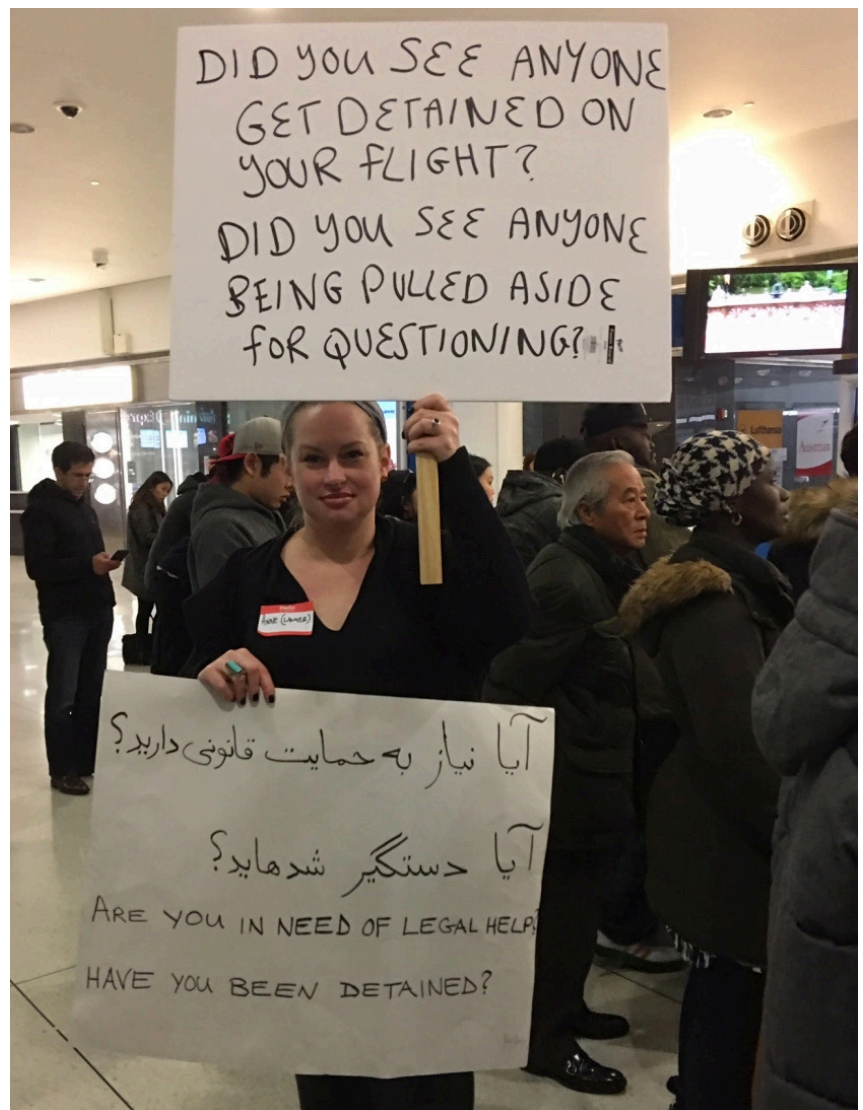 DID YOU SEE ANYONE
GET DETAINED ON
YOUR FLIGHT?
DID YOU SEE ANYONE
BEING PULLED ASIDE
FOR QUESTIONING?
Lufthansa
Austrian
Hello
ANNE (LAWYER)
آیا نیاز به حمایت قانونی دارید؟
آیا دستگیر شدهاید؟
ARE YOU IN NEED OF LEGAL HELP?
HAVE YOU BEEN DETAINED?